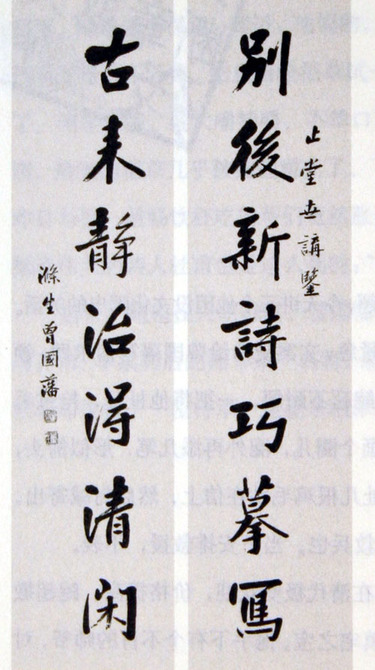 別後新詩巧摹寫
止堂世講鑒
古來靜治得清閑
滌生曾國藩